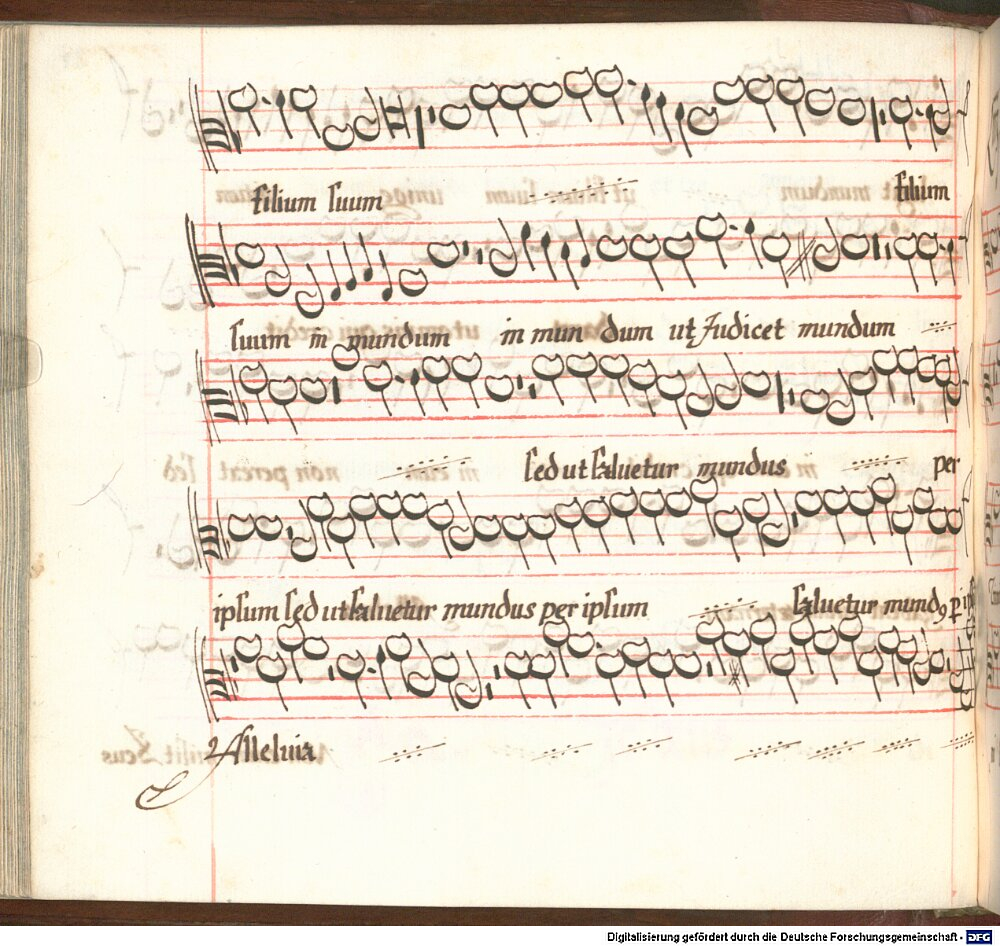 filium suum filium
suum in mundum in mun dum ut Judicet mundum
sed ut saluetur mundus per
ipsum sed ut saluetur mundus per ipsum saluetur mund9 p ips
Alleluia
Digitalisierung gefördert durch die Deutsche Forschungsgemeinschaft - DFG